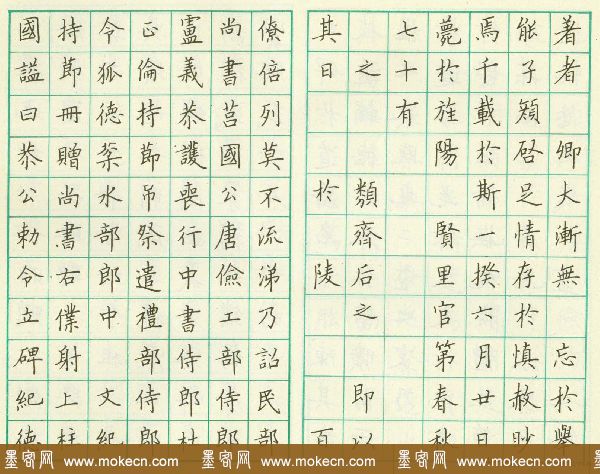 著者卿大漸無忘於舉
能子啓足情存於慎赦
焉千載於斯一揆六月廿日
薨於旌陽賢里官第春秋
七十有
之類齊后之即以
其日於陵百
僚倍列莫不流涕乃詔民部
尚書莒國公唐儉工部侍郎
盧義恭護喪行中書侍郎杜
正倫持節吊祭遣禮部侍郎
令狐德棻水部郎中文紀
持節冊贈尚書右僕射上柱
國謚曰恭公勅令立碑紀德
墨客网 www.mokecn.com 墨客网 www.mokecn.com 墨客网 www.mokecn.com